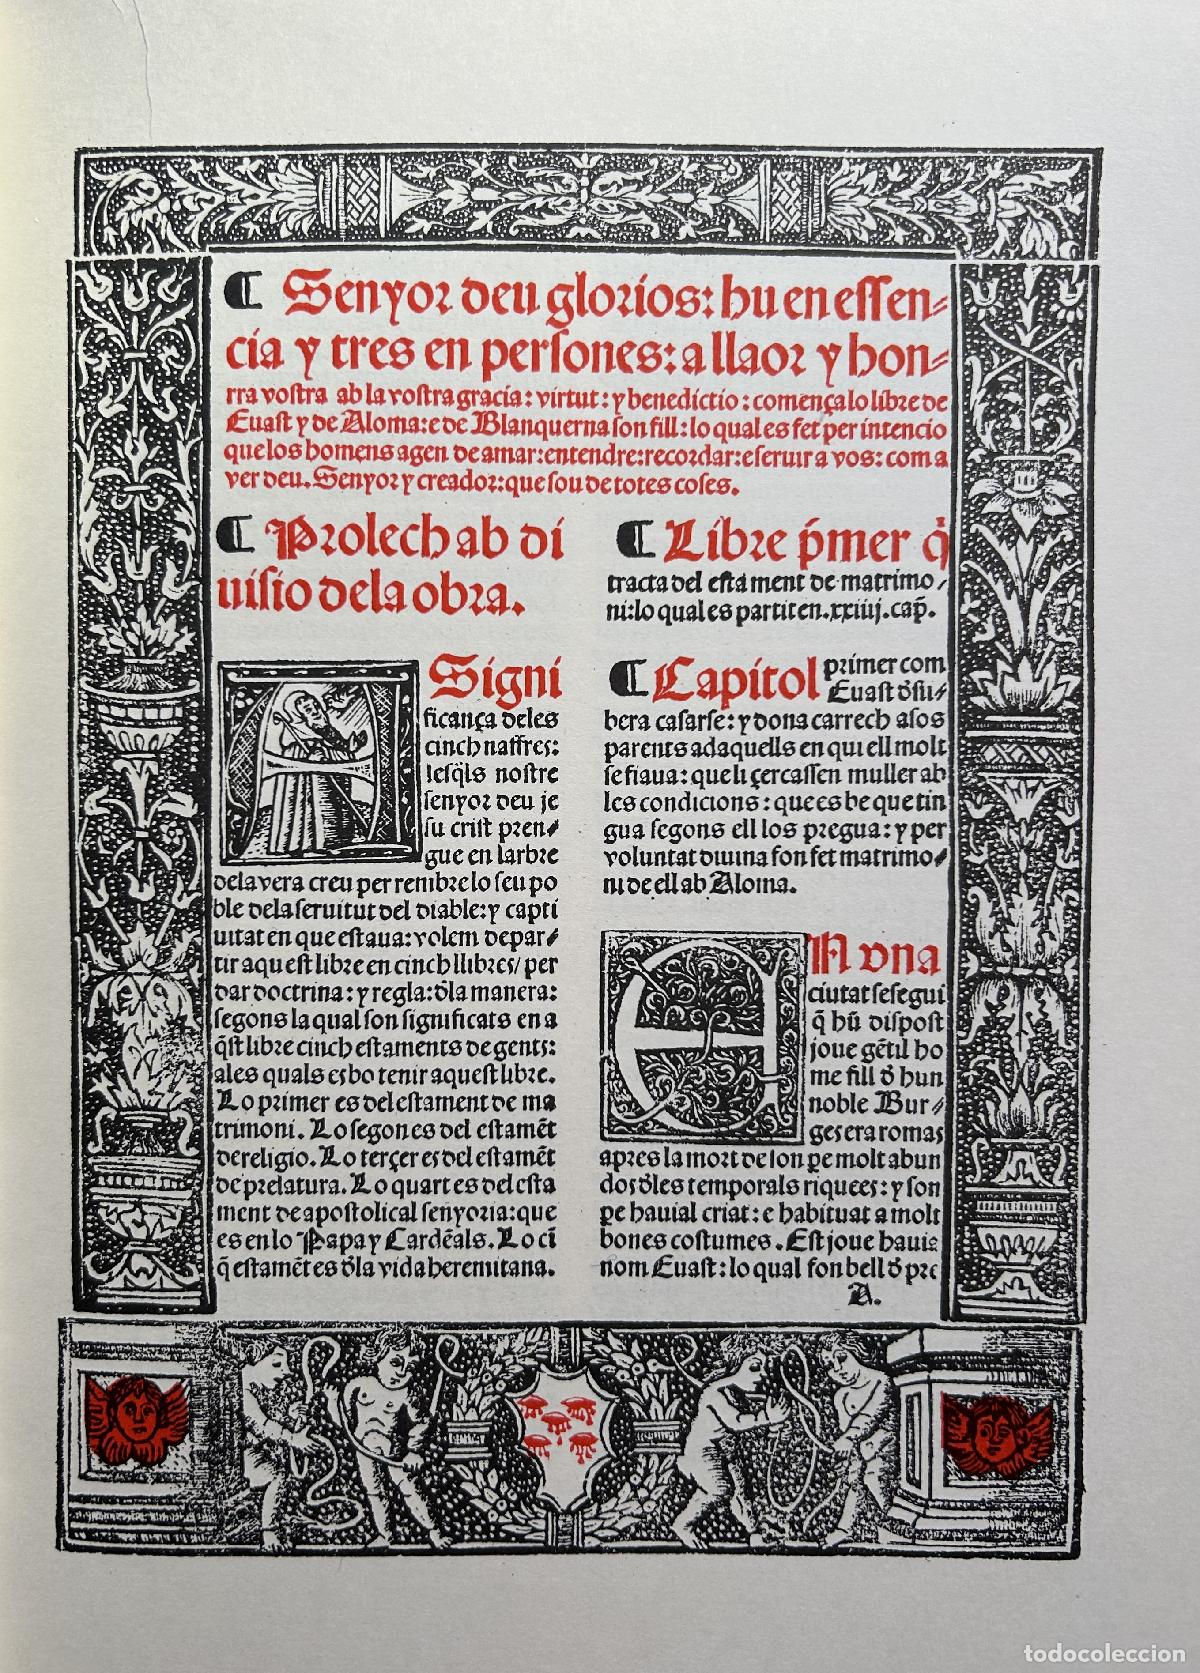 ¶ Senyor deu glorios: hu en essen-
cia y tres en persones: a llaor y hon-
rra vostra ab la vostra gracia: virtut: y benedictio: comença lo libre de
Euast y de Aloma: e de Blanquerna son fill: lo qual es fet per intencio
que los homens agen de amar: entendre: recordar: e seruir a vos: com a
ver deu. Senyor y creador: que sou de totes coses.
¶ Prolech ab di
uisio dela obra.
Signi
ficança deles
cinch naffres:
lesq̃ls nostre
senyor deu je
su crist pren-
gue en larbre
dela vera creu per rembre lo seu po
ble dela seruitut del diable: y capti
uitat en que estaua: volem depar-
tir aquest libre en cinch llibres/ per
dar doctrina: y regla: d̃la manera:
segons la qual son significats en a
q̃st libre cinch estaments de gents:
ales quals es bo tenir aquest libre.
Lo primer es del estament de ma
trimoni. Lo segon es del estamẽt
de religio. Lo terçer es del estamẽt
de prelatura. Lo quart es del esta
ment de apostolical senyoria: que
es en lo Papa y Cardẽals. Lo cĩ
q̃ estamẽt es d̃la vida heremitana.
¶ Libre p̃mer q̃
tracta del estament de matrimo-
ni: lo qual es partit en .xxiiij. cap̃.
¶ Capitol primer com
Euast d̃su-
bera casarse: y dona carrech a sos
parents ad aquells en qui ell molt
se fiaua: que li çercassen muller ab
les condicions: que es be que tin
gua segons ell los pregua: y per
voluntat diuina fon fet matrimo-
ni de ell ab Aloma.
EN vna
ciutat se segui
q̃ hũ dispost
joue gẽtil ho
me fill d̃ hun
noble Bur-
ges era romas
apres la mort de son pe molt abun
dos d̃les temporals riquees: y son
pe hauial criat: e habituat a molt
bones costumes. Est joue hauie
nom Euast: lo qual fon bell d̃ pre
A.
todocoleccion